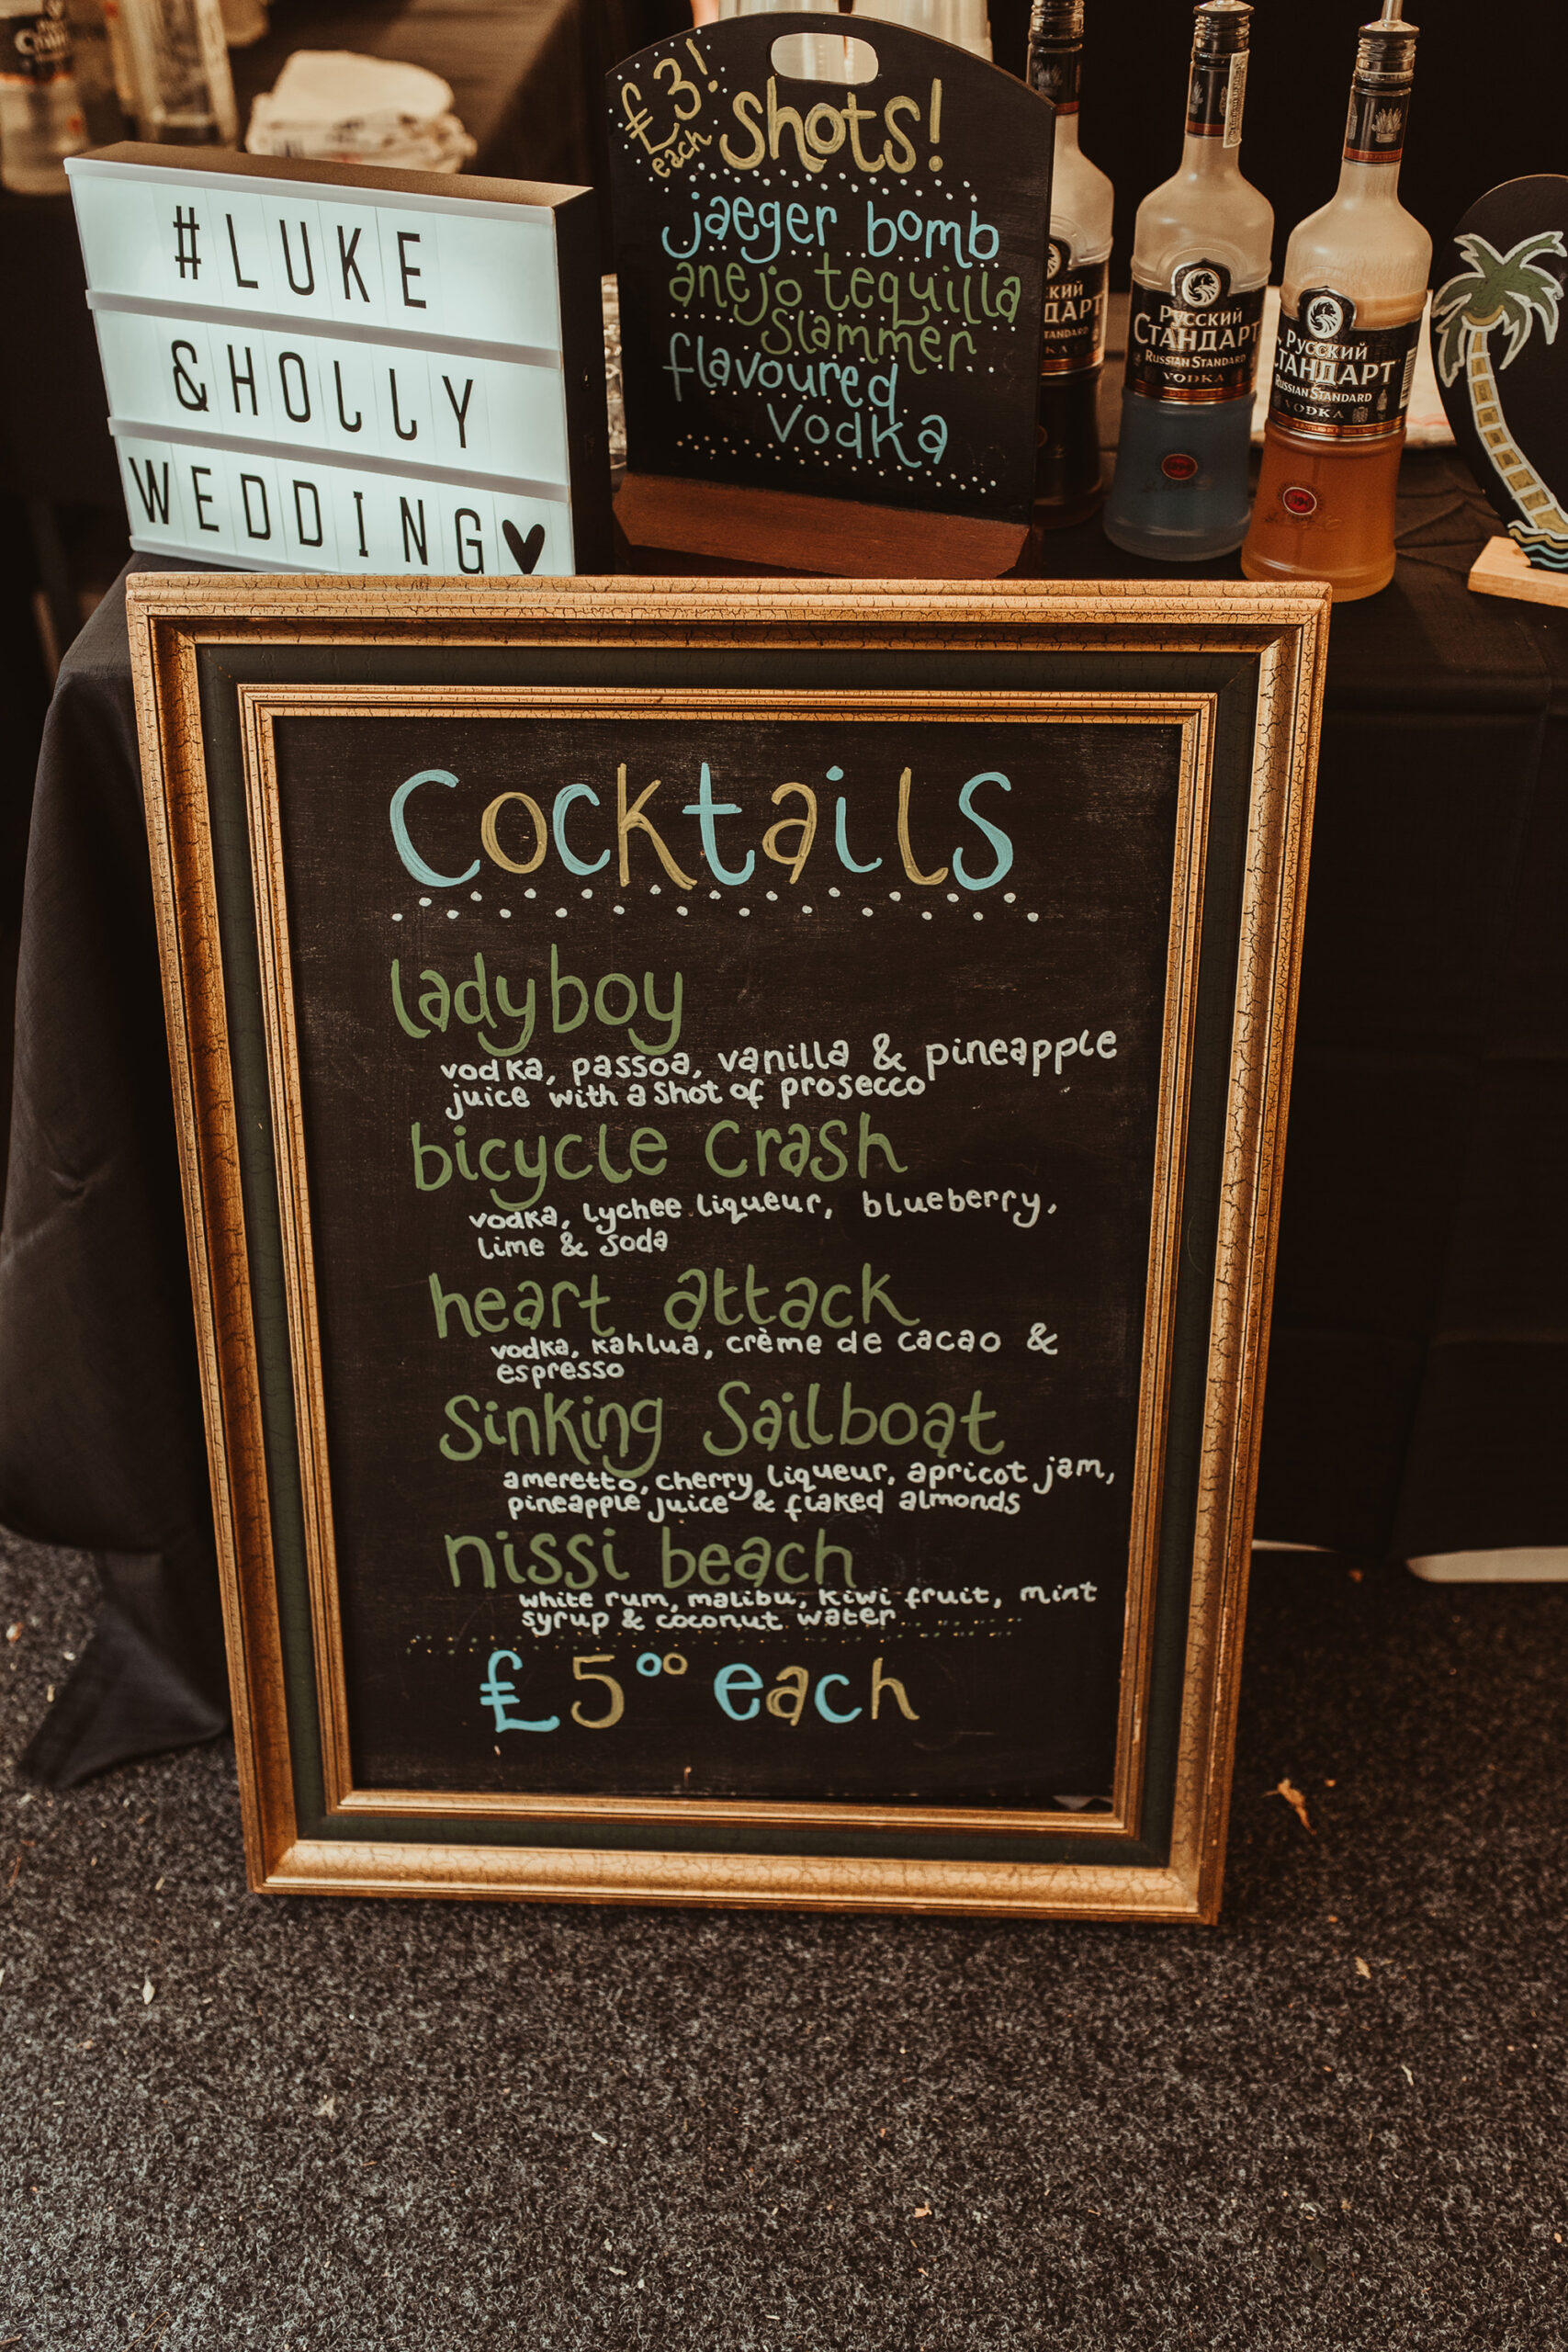 #LUKE
&HOLLY
WEDDING♥
£3!
each
Shots!
jaeger bomb
anejo tequilla
slammer
flavoured
vodka
СКИЙ
ДАРТ
TANDARD
РУССКИЙ
СТАНДАРТ
RUSSIAN STANDARD
VODKA
РУССКИЙ
СТАНДАРТ
RUSSIAN STANDARD
VODKA
Cocktails
ladyboy
vodka, passoa, vanilla & pineapple
juice with a shot of prosecco
bicycle crash
vodka, lychee liqueur, blueberry,
lime & soda
heart attack
vodka, kahlua, crème de cacao &
espresso
Sinking Sailboat
ameretto, cherry liqueur, apricot jam,
pineapple juice & flaked almonds
nissi beach
white rum, malibu, kiwi fruit, mint
syrup & coconut water
£5⁰⁰ each